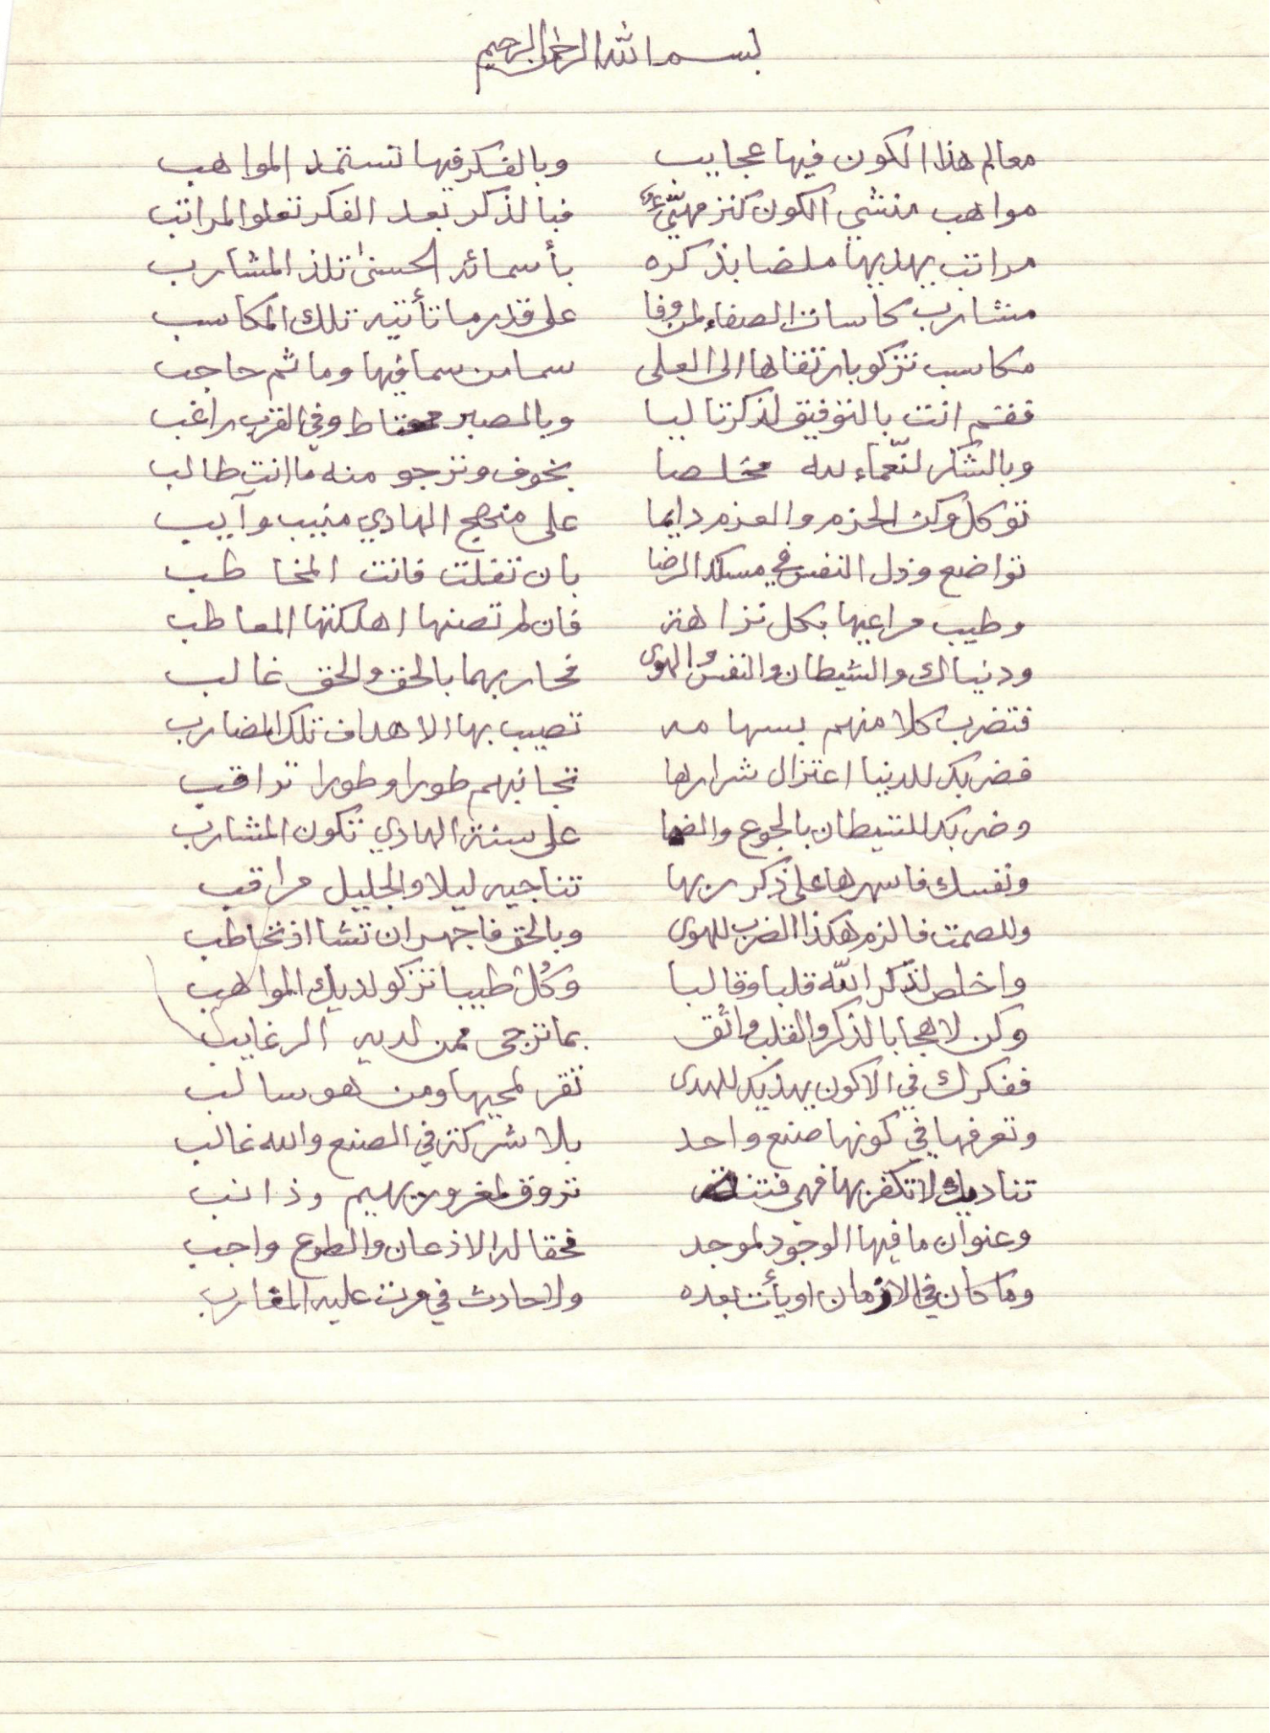 بسم الله الرحمن الرحيم
معالم هذا الكون فيها عجايب وبالفكر فيها تستمد المواهب
مواهب منشي الكون كنز مهيّئ فبالذكر بعد الفكر تعلو المراتب
مراتب يهديها بذكره بأسمائه الحسنىٰ تلذ المشارب
مشارب كاسات الصفاء لمن وفا على قدر ما تأتيه تلك المكاسب
مكاسب تزكو بارتقاها الى العلى سما من سما فيها وما ثم حاجب
فقم انت بالتوفيق لذكر تاليا وبالصبر محتاط وفي القرب راغب
وبالشكر لنّعماء لله مخلصا بخوف وترجو منه ما انت طالب
توكل وكن الحزم والعزم دايما على منهج الهادي منيب وآيب
تواضع وذل النفس في مسلك الرضا بان تفلت فانت المخاطب
وطيب مراعيها بكل نزاهة فان لم تصنها اهلكتها المعاطب
ودنياك والشيطان والنفس والهوى فحاربهما بالحق والحق غالب
فتضرب كلا منهم بسهامه تصيب بها الاهداف تلك المضارب
فضربك للدنيا اعتزال شرارها تجانبهم طورا وطورا تراقب
وضربك للشيطان بالجوع والضما على سنة الهادي تكون المشارب
ونفسك فاسهرها على ذكر ربها تناجيه ليلا والجليل مراقب
وللصمت فالزم هكذا الضرب للهوى وبالحق فاجهر ان تشا اذ تخاطب
واخلص لذكر اللّه قلبا وقالبا وكُل طيبا تزكو لديك المواهب
وكن لاهجا بالذكر والقلب واثق بما ترجى ممن لديه الرغايب
ففكرك في الاكون يهديك للهدى تقر لمحيها ومن هو سالب
وتعرفها في كونها صنع واحد بلا شركة في الصنع والله غالب
تناديك لا تكفر بها فهي فتنة تروق لمغرور يهيم وذائب
وعنوان ما فيها الوجود لموجد فحقا له الاذعان والطوع واجب
وما كان في الازمان او يأت بعده ولا حادث في مرت عليه المقارب